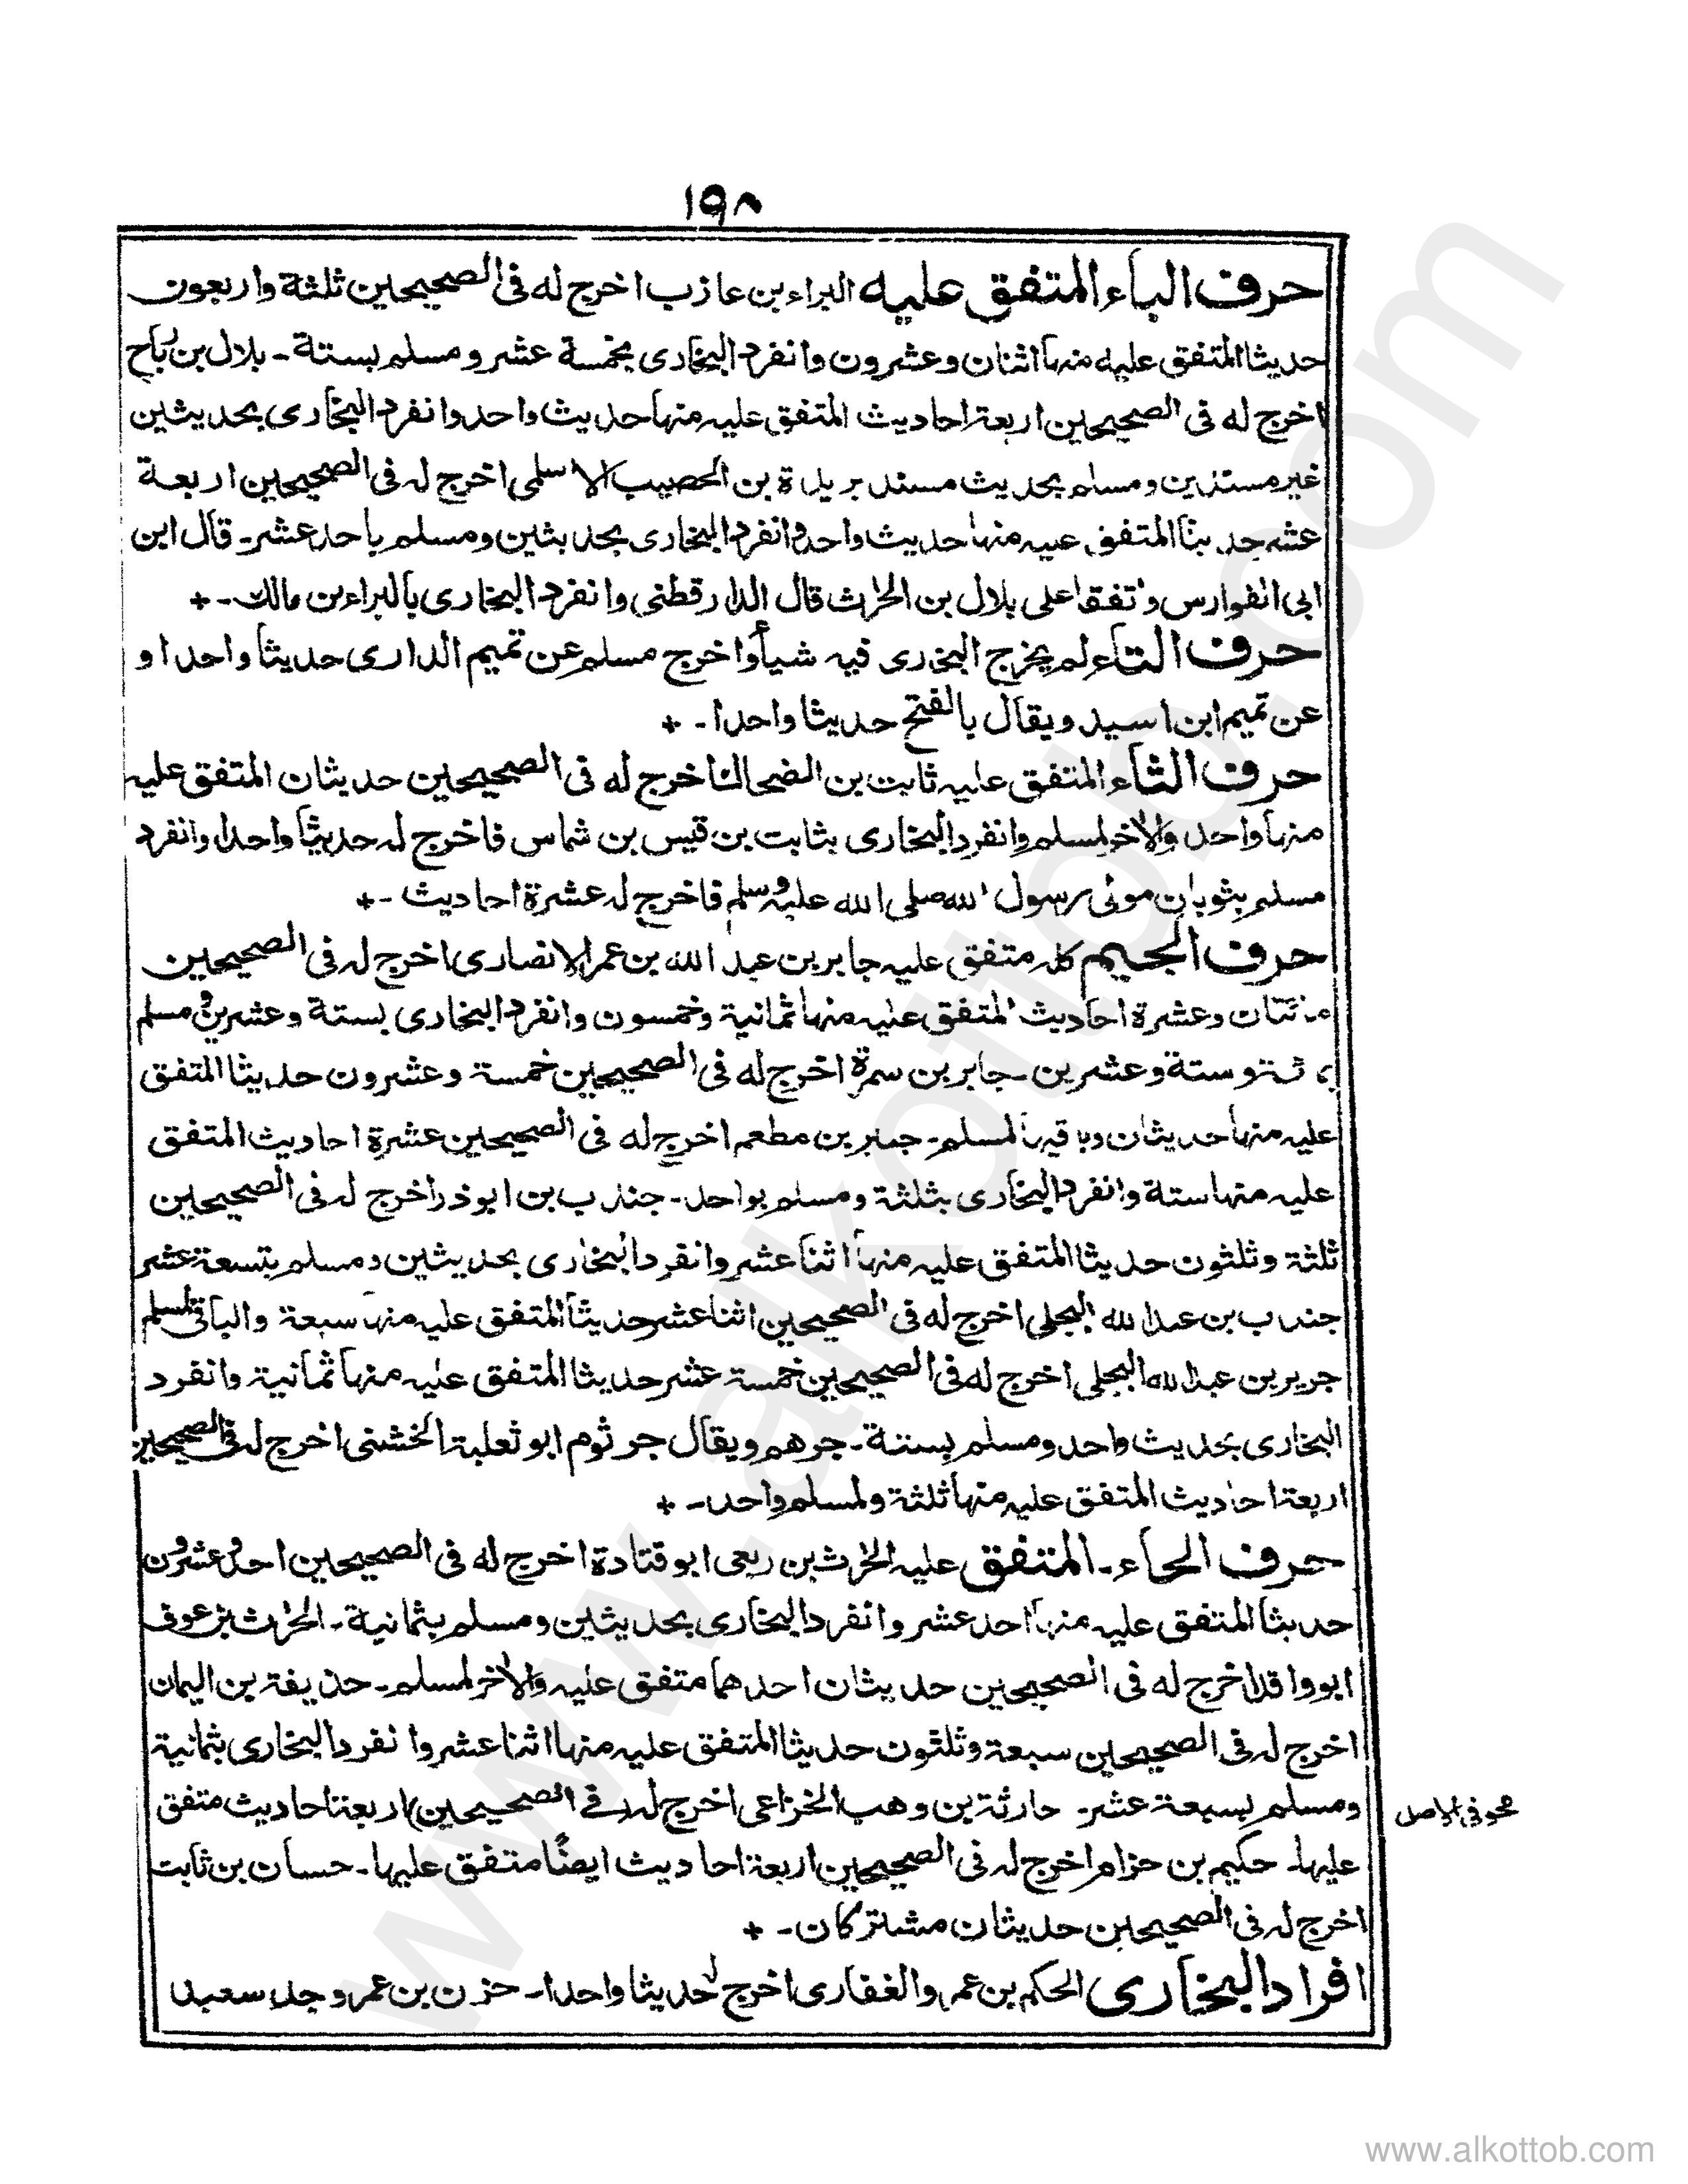 ١٩٨
حرف الباء المتفق عليه البراء بن عازب اخرج له فى الصحيحين ثلثة واربعون
حديثا المتفق عليه منها اثنان وعشرون وانفرد البخارى بخمسة عشر ومسلم بستة - بلال بن رباح
اخرج له فى الصحيحين اربعة احاديث المتفق عليه منها حديث واحد وانفرد البخارى بحديثين
غير مسندين ومسلم بحديث مسند بريدة بن الحصيب الاسلمى اخرج له فى الصحيحين اربعة
عشر حديثا المتفق عليه منها حديث واحد وانفرد البخارى بحديثين ومسلم باحد عشر - قال ابن
ابى الفوارس واتفقا على بلال بن الحرث قال الدارقطنى وانفرد البخارى بالبراء بن مالك - +
حرف التاء لم يخرج البخارى فيه شيأ واخرج مسلم عن تميم الدارى حديثا واحدا و
عن تميم ابن اسيد ويقال بالفتح حديثا واحدا - +
حرف الثاء المتفق عليه ثابت بن الضحاك اخرج له فى الصحيحين حديثان المتفق عليه
منها واحد والاخر لمسلم وانفرد البخارى بثابت بن قيس بن شماس فاخرج له حديثا واحدا وانفرد
مسلم بثوبان مولى رسول الله صلى الله عليه وسلم فاخرج له عشرة احاديث - +
حرف الجيم كله متفق عليه جابر بن عبد الله بن عمر الانصارى اخرج له فى الصحيحين
مائتان وعشرة احاديث المتفق عليه منها ثمانية وخمسون وانفرد البخارى بستة وعشرين ومسلم
بمائة وستة وعشرين - جابر بن سمرة اخرج له فى الصحيحين خمسة وعشرون حديثا المتفق
عليه منها حديثان وباقيها لمسلم - جبير بن مطعم اخرج له فى الصحيحين عشرة احاديث المتفق
عليه منها ستة وانفرد البخارى بثلثة ومسلم بواحد - جندب بن ابوذر اخرج له فى الصحيحين
ثلثة وثلثون حديثا المتفق عليه منها اثنا عشر وانفرد البخارى بحديثين ومسلم بتسعة عشر
جندب بن عبد الله البجلى اخرج له فى الصحيحين اثنا عشر حديثا المتفق عليه منها سبعة والباقى لمسلم
جرير بن عبد الله البجلى اخرج له فى الصحيحين خمسة عشر حديثا المتفق عليه منها ثمانية وانفرد
البخارى بحديث واحد ومسلم بستة - جرهم ويقال جرثوم ابو ثعلبة الخشنى اخرج له فى الصحيحين
اربعة احاديث المتفق عليه منها ثلثة ولمسلم واحد - +
حرف الحاء - المتفق عليه الحرث بن ربعى ابو قتادة اخرج له فى الصحيحين احد وعشرون
حديثا المتفق عليه منها احد عشر وانفرد البخارى بحديثين ومسلم بثمانية - الحرث بن عوف
ابو واقد اخرج له فى الصحيحين حديثان احدهما متفق عليه والاخر لمسلم - حذيفة بن اليمان
اخرج له فى الصحيحين سبعة وثلثون حديثا المتفق عليه منها اثنا عشر وانفرد البخارى بثمانية
ومسلم بسبعة عشر - حارثة بن وهب الخزاعى اخرج له (فى الصحيحين) اربعة احاديث متفق
محو فى الاصل
عليها - حكيم بن حزام اخرج له فى الصحيحين اربعة احاديث ايضًا متفق عليها - حسان بن ثابت
اخرج له فى الصحيحين حديثان مشتركان - +
افراد البخارى الحكم بن عمرو الغفارى اخرج له حديثا واحدا - حزن بن عمرو جد سعيد
www.alkottob.com
www.alkottob.com